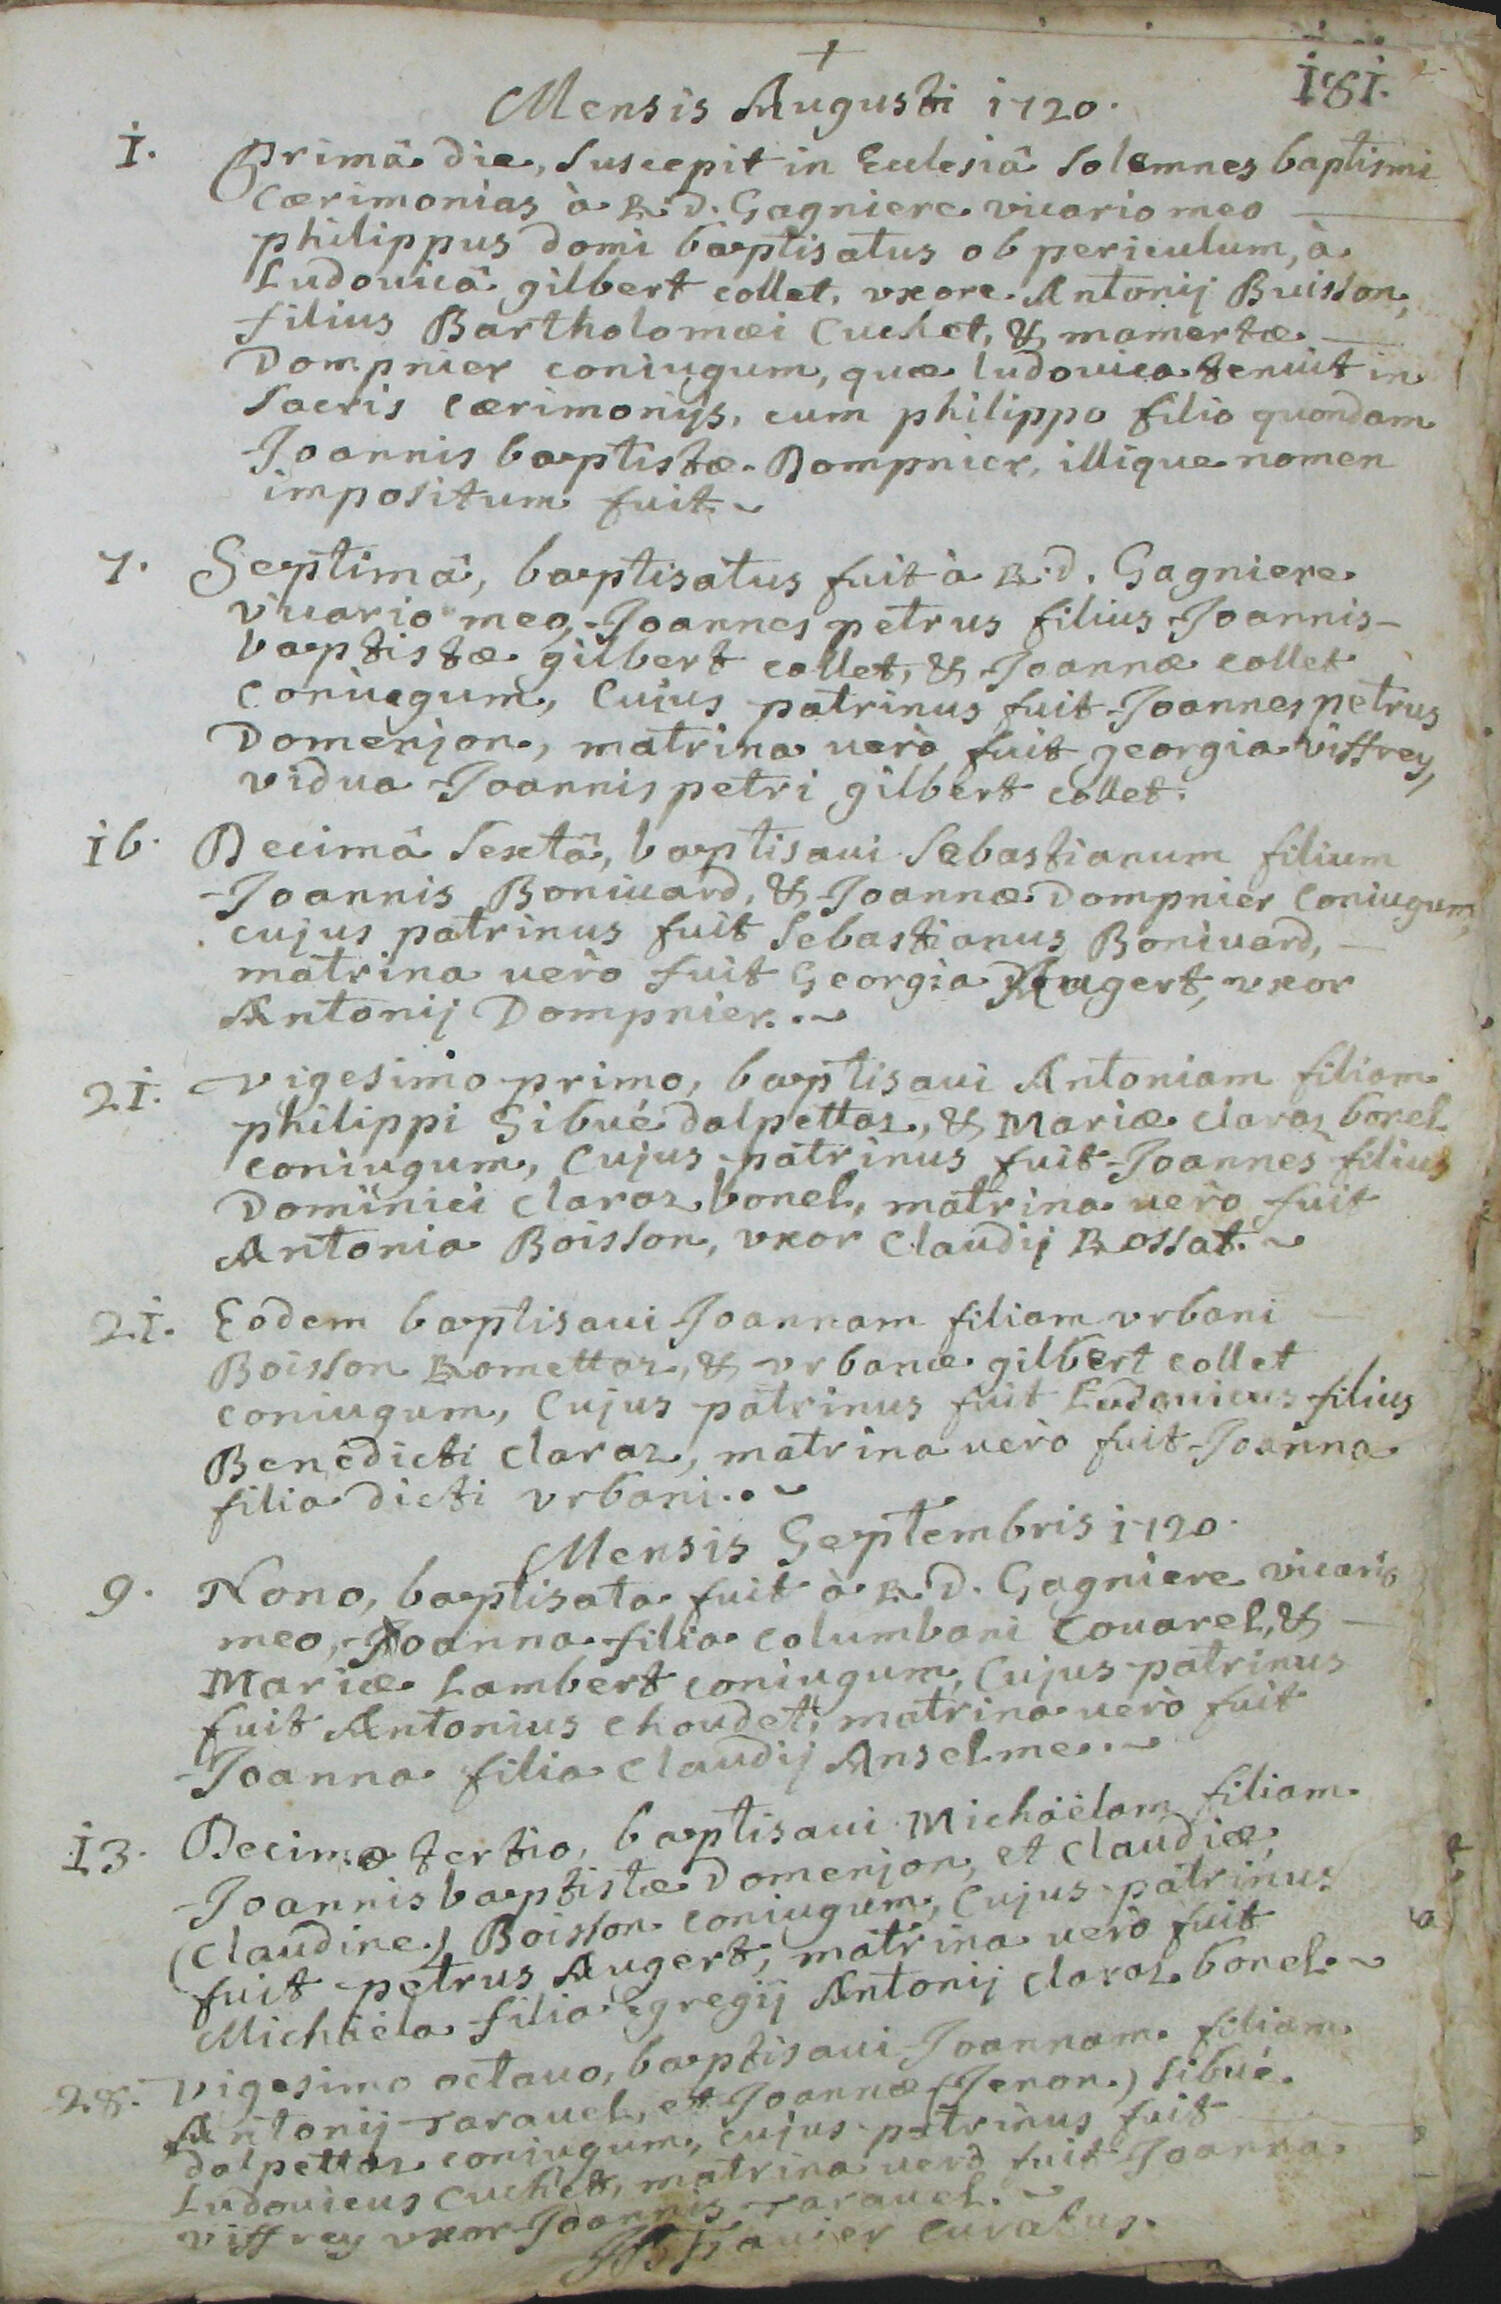 +
181.
Mensis Augusti 1720.
1. Primâ die, Suscepit in Ecclesiâ Solemnes baptismi
Cærimonias à R.D. Gagniere vicario meo
philippus domi baptisatus ob periculum, à
Ludovicâ gilbert collet, vxore Antonij Buisson,
filius Bartholomæi Cuchet, & mamertæ
Dompnier coniugum, quæ ludovica tenuit in
Sacris Cærimonijs, cum philippo filio quondam
Joannis baptistæ Dompnier, illique nomen
impositum fuit.
7. Septimâ, baptisatus fuit à R.d. Gagniere
vicario meo, Joannes petrus filius Joannis-
baptistæ gilbert collet, & Joannæ collet
coniugum, Cuius patrinus fuit Joannes petrus
Domenjon, matrina uerò fuit georgia viffrey,
vidua Joannis petri gilbert collet.
16. Decimâ Sextâ, baptisaui Sebastianum filium
Joannis Boniuard, & Joannæ Dompnier Coniugum,
cujus patrinus fuit Sebastianus Boniuard,
matrina uerò fuit Georgia Augert, vxor
Antonij Dompnier.
21. Vigesimo primo, baptisaui Antoniam filiam
philippi Sibué dalpettaz, & Mariæ claraz bonel
coniugum, Cujus patrinus fuit Joannes filius
Dominici claraz bonel, matrina uerò fuit
Antonia Boisson, vxor Claudij Rossat.
21. Eodem baptisaui Joannam filiam vrbani
Boisson Romettaz, & vrbanæ gilbert collet
coniugum, Cujus patrinus fuit Ludouicus filius
Benedicti claraz, matrina uerò fuit Joanna
filia dicti vrbani.
Mensis Septembris 1720.
9. Nono, baptisata fuit à R.D. Gagniere vicario
meo, Joanna filia columbani Couarel, &
Mariæ Lambert coniugum, Cujus patrinus
fuit Antonius choudet, matrina uerò fuit
Joanna filia Claudij Anselme.
13. Decimo tertio, baptisaui Michaëlam filiam
Joannis baptistæ Domenjon, et Claudiæ,
(Claudine) Boisson coniugum, Cujus patrinus
fuit petrus Augert, matrina uerò fuit
Michaëla filia Egregij Antonij claraz bonel.
28. Vigesimo octauo, baptisaui Joannam filiam
Antonij Tarauel, et Joannæ (Jenon) Sibué
dalpettaz coniugum, cujus patrinus fuit
Ludouicus Cuchet, matrina uerò fuit Joanna
viffrey vxor Joannis Tarauel.
curatus.